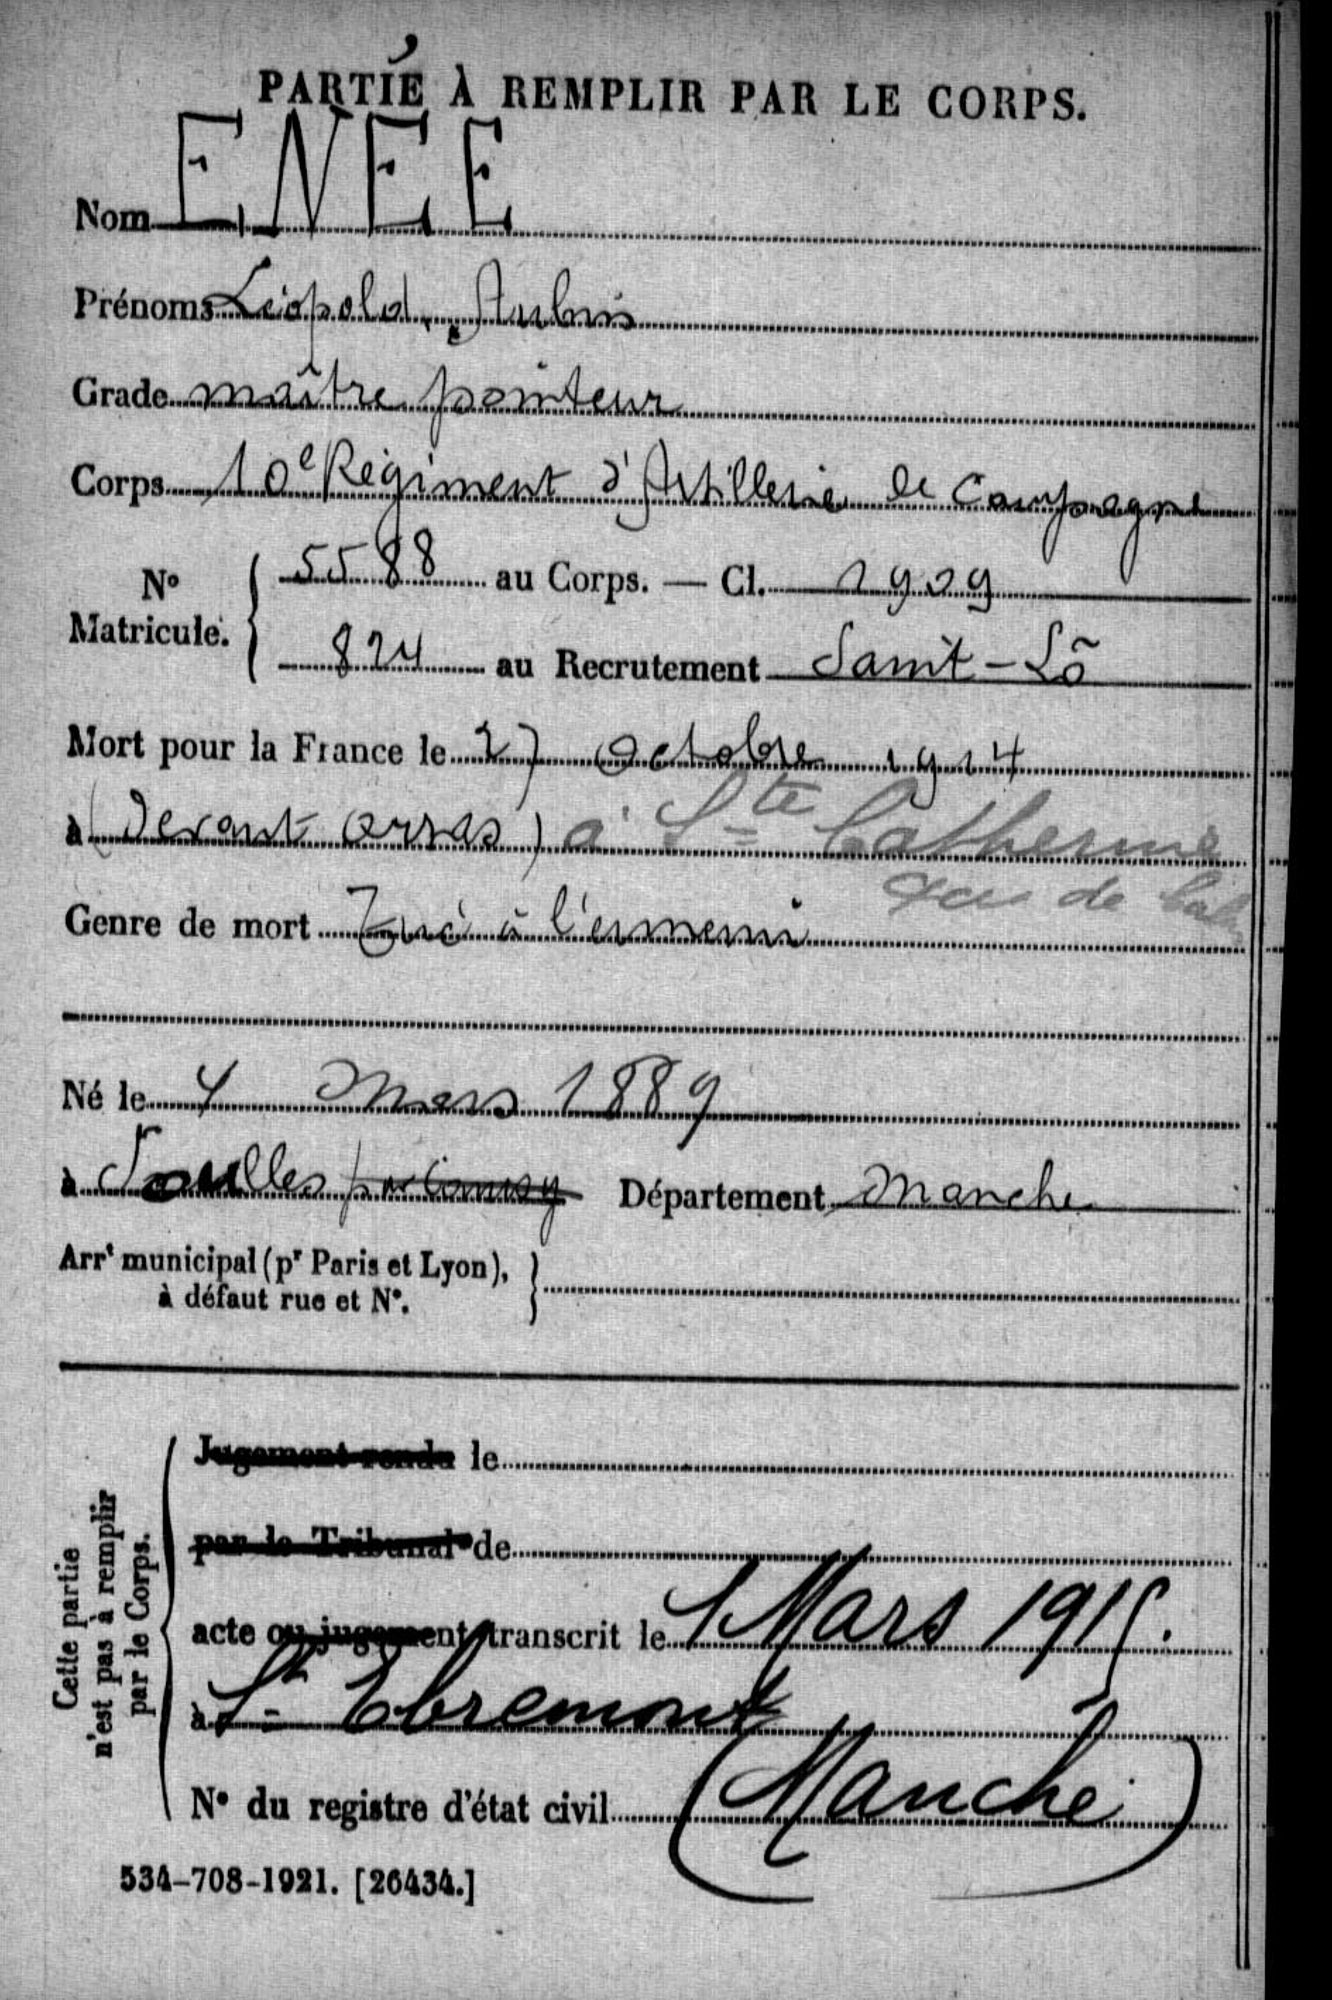 PARTIE À REMPLIR PAR LE CORPS.
Nom ENÉE
Prénoms Léopold, Aubin
Grade maître pointeur
Corps 10e Régiment d'Artillerie de Campagne
N° Matricule. 5588 au Corps. — Cl. 1909
824 au Recrutement Saint-Lô
Mort pour la France le 27 Octobre 1914
à (devant Arras) à Ste Catherine
de
Genre de mort Tué à l'ennemi
Né le 4 Mars 1889
à Soulles Département Manche
Arrt municipal (pr Paris et Lyon),
à défaut rue et N°.
Cette partie n'est pas à remplir par le Corps.
Jugement rendu le
par le Tribunal de
acte ou jugement transcrit le 1 Mars 1915.
à St Ebremont
N° du registre d'état civil (Manche)
534-708-1921. [26434.]